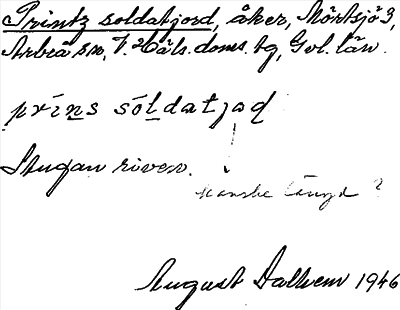 Printz soldatjord, åker, Mörtsjö 3,
Arbrå sn, V. Häls. doms. tg, Gvl. län.
prins sòldatjaḍ
Stugan riven.
kanske längd?
August Dalhem 1946